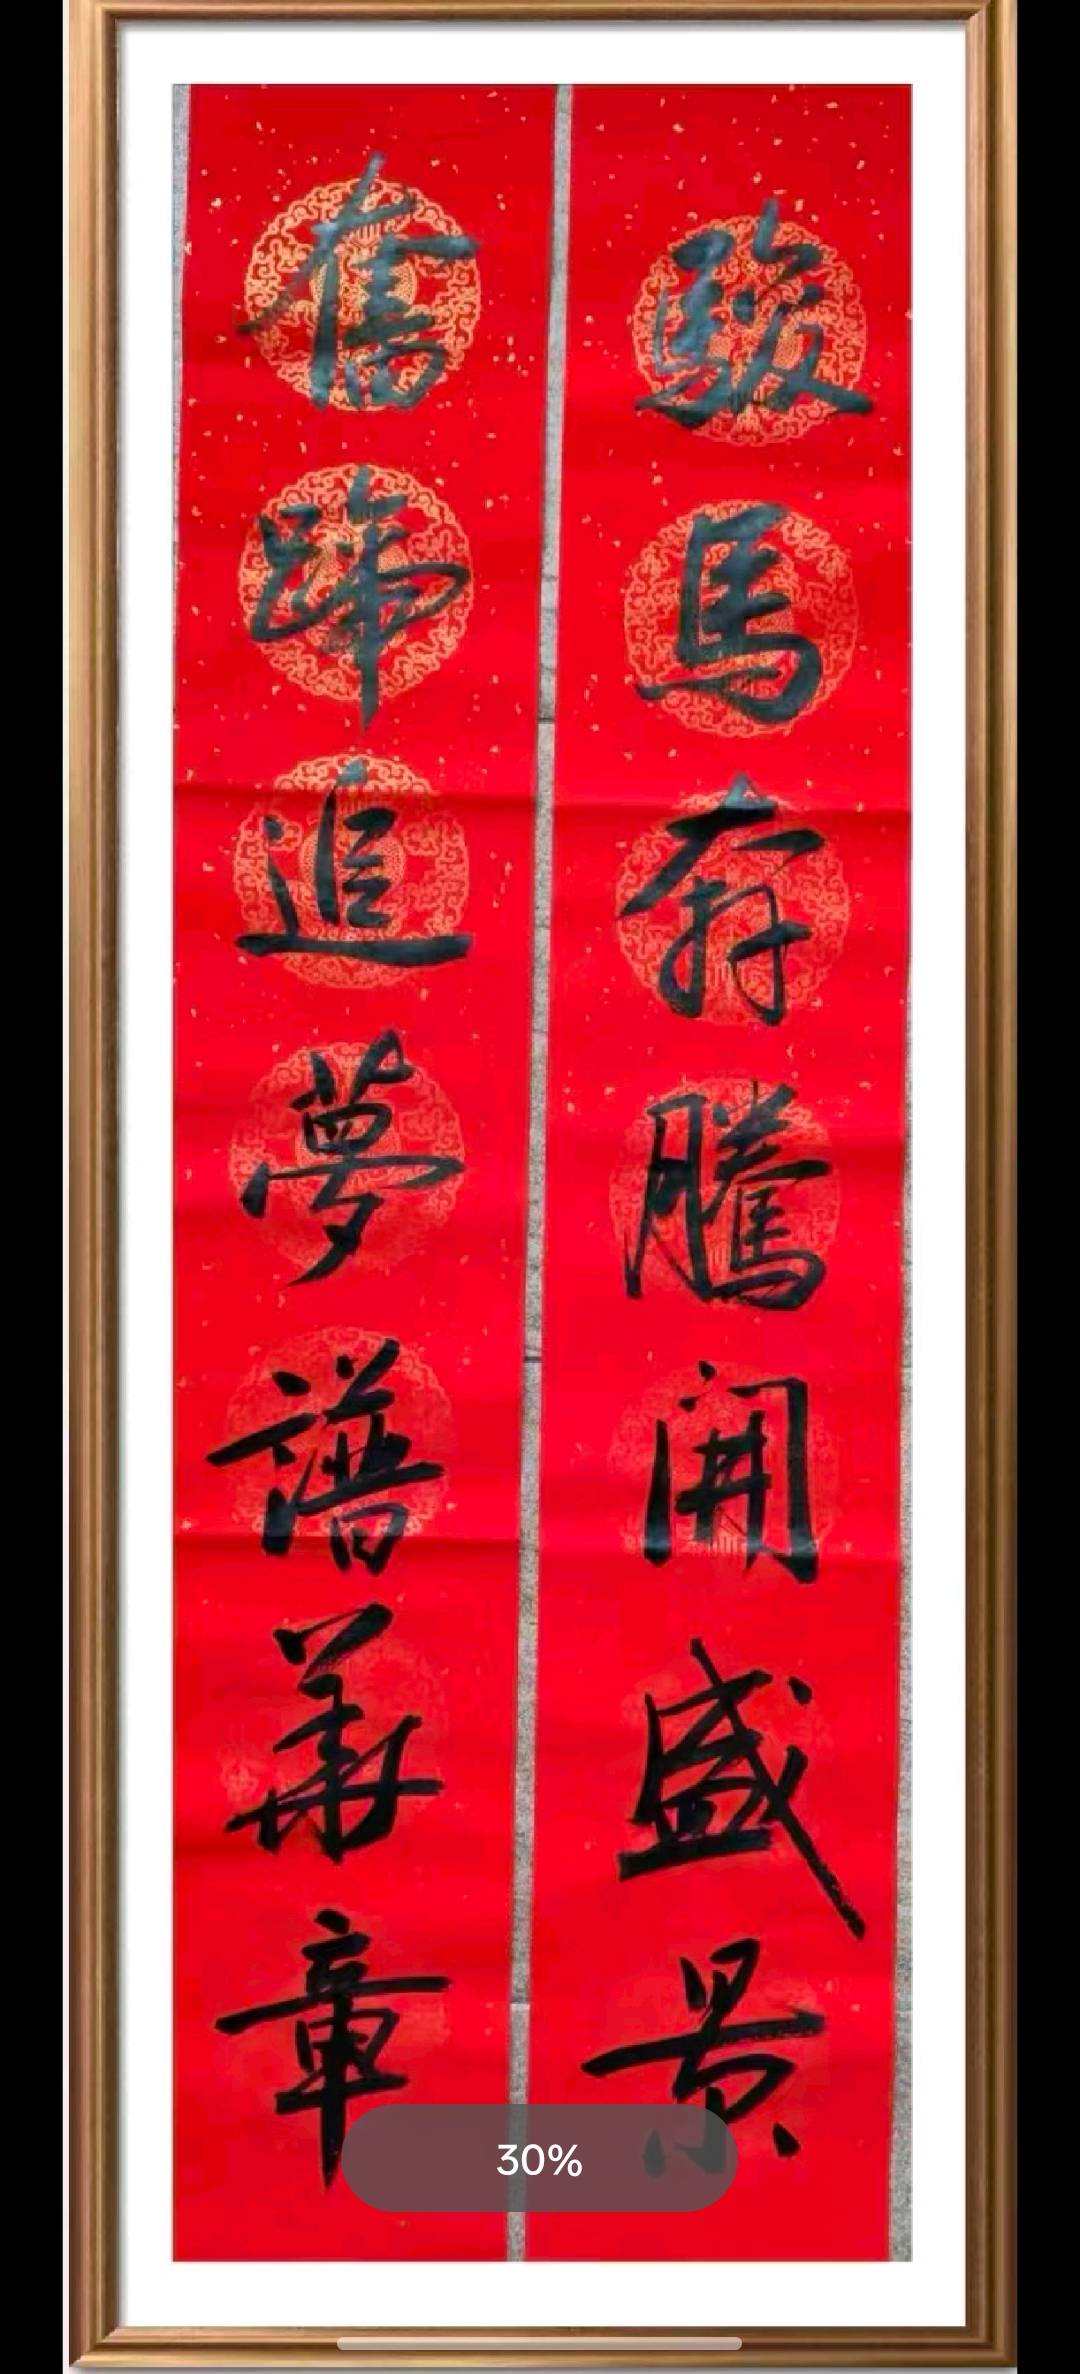 駿馬奔騰開盛景
奮蹄追夢譜華章
30%